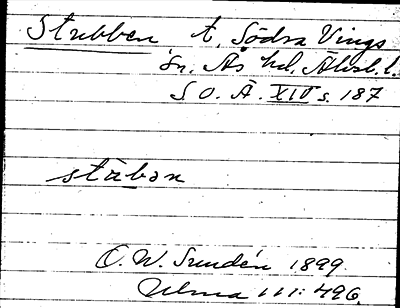 Stubben t, Södra Vings
sn. Ås hd. Älvsb. l.
S O. Ä. XIII s. 187
stàban
O. W. Sundén 1899.
Ulma 111:496.